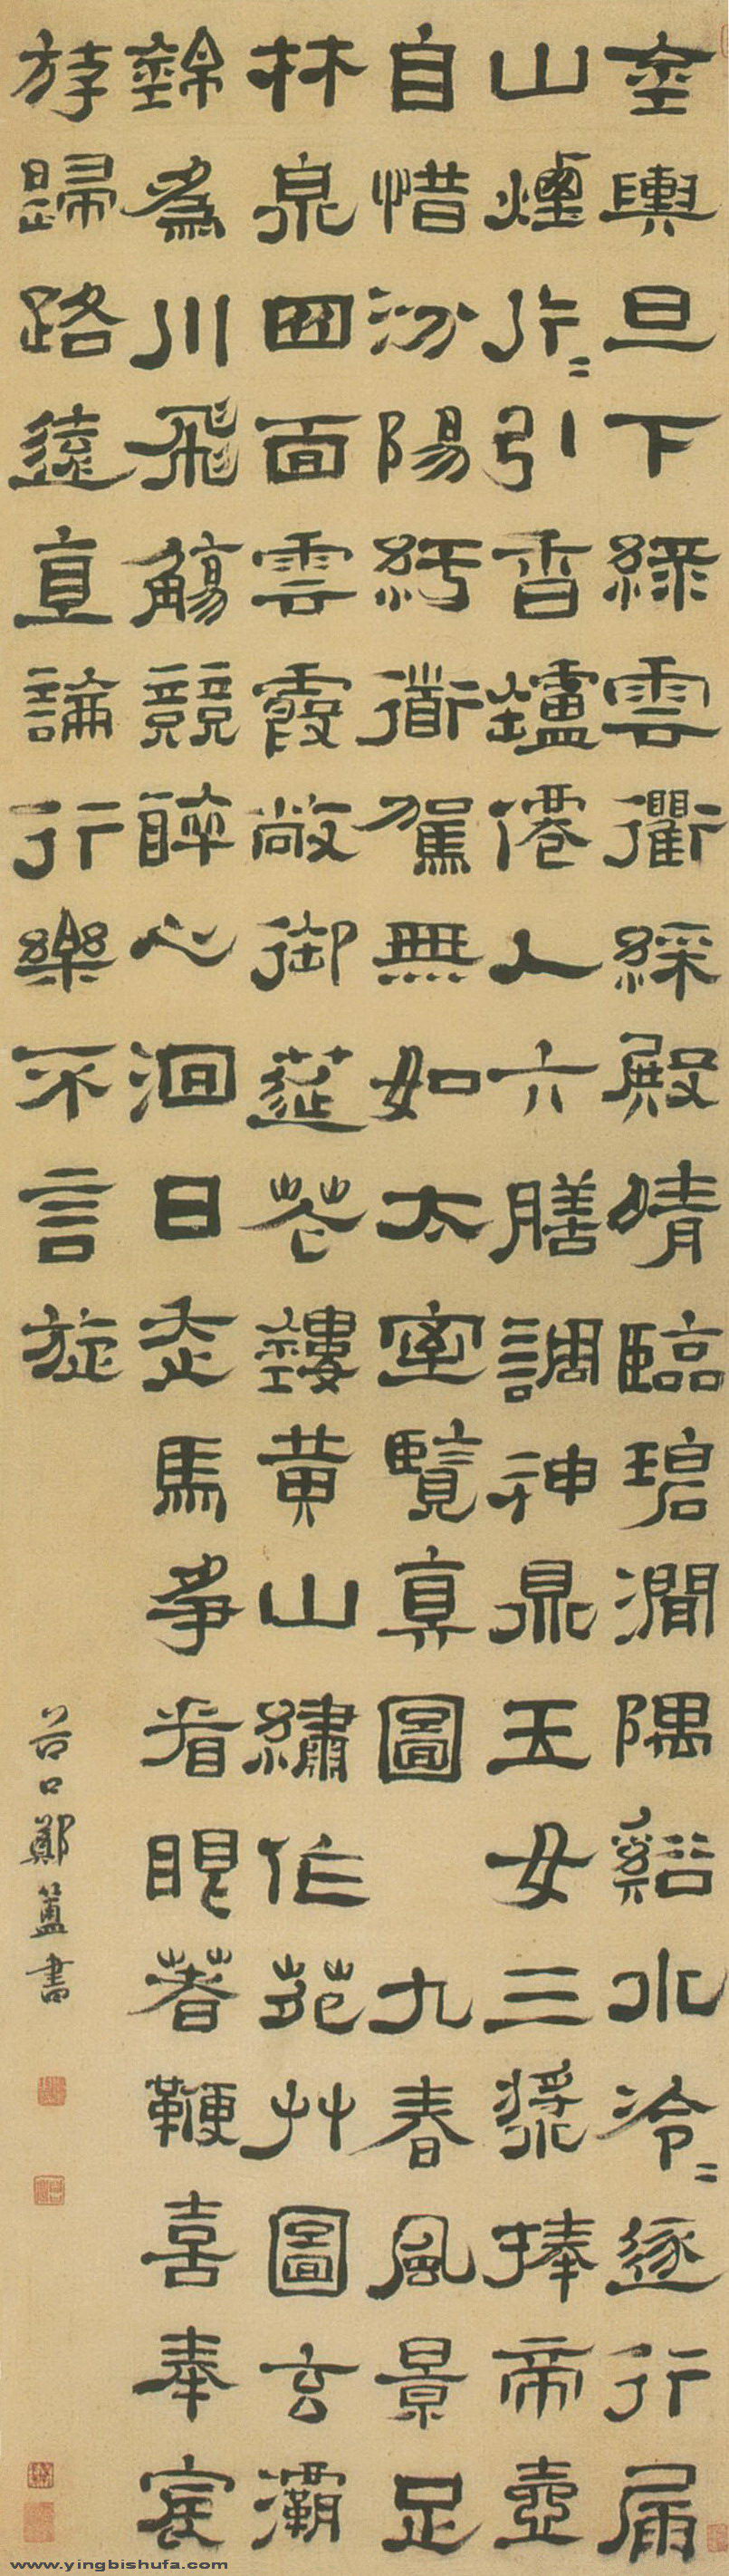 金輿旦下綠雲衢綵殿晴臨碧澗隅谿水泠〻逐行屚
山煙片〻引香鑪僊人六膳調神鼎玉女三漿捧帝壺
自惜汾陽紆衜駕無如太室覽真圖 九春風景足
林泉四面雲霞敞御筵花鏤黃山繡作苑艸圖玄灞
錦為川飛觴競醉心洄日走馬爭看眼著鞭喜奉宸
斿歸路遠直論行樂不言旋
谷口鄭簠書
www.yingbishufa.com